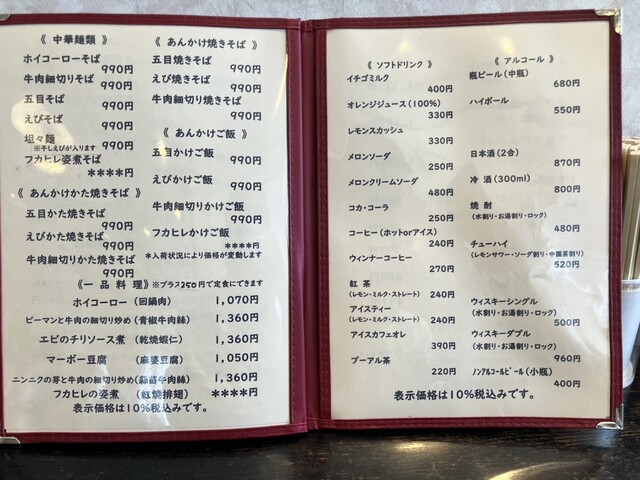 《 中華麺類 》
ホイコーローそば
990円
牛肉細切りそば
990円
五目そば
990円
えびそば
990円
坦々麺
※干しえびが入ります 990円
フカヒレ姿煮そば
****円
《 あんかけかた焼きそば 》
五目かた焼きそば
990円
えびかた焼きそば
990円
牛肉細切りかた焼きそば
990円
《 あんかけ焼きそば 》
五目焼きそば
990円
えび焼きそば
990円
牛肉細切り焼きそば
990円
《 あんかけご飯 》
五目かけご飯
990円
えびかけご飯
990円
牛肉細切りかけご飯
990円
フカヒレかけご飯
****円
*入荷状況により価格が変動します
《一 品 料 理》 ※プラス250円で定食にできます
ホイコーロー (回鍋肉) 1,070円
ピーマンと牛肉の細切り炒め (青椒牛肉絲) 1,360円
エビのチリソース煮 (乾焼蝦仁) 1,360円
マーボー豆腐 (麻婆豆腐) 1,050円
ニンニクの芽と牛肉の細切り炒め (蒜苗牛肉絲) 1,360円
フカヒレの姿煮 (紅焼排翅) ****円
表示価格は10%税込みです。
《 ソフトドリンク 》
イチゴミルク
400円
オレンジジュース (100%)
330円
レモンスカッシュ
330円
メロンソーダ
250円
メロンクリームソーダ
480円
コカ・コーラ
250円
コーヒー (ホットorアイス)
240円
ウィンナーコーヒー
270円
紅 茶
(レモン・ミルク・ストレート) 240円
アイスティー
(レモン・ミルク・ストレート) 240円
アイスカフェオレ
390円
プーアル茶
220円
《 アルコール 》
瓶ビール (中瓶)
680円
ハイボール
550円
日本酒 (2合)
870円
冷 酒 (300ml)
800円
焼 酎
(水割り・お湯割り・ロック)
480円
チューハイ
(レモンサワー・ソーダ割り・中国茶割り)
520円
ウィスキーシングル
(水割り・お湯割り・ロック)
500円
ウィスキーダブル
(水割り・お湯割り・ロック)
960円
ノンアルコールビール (小瓶)
400円
表示価格は10%税込みです。